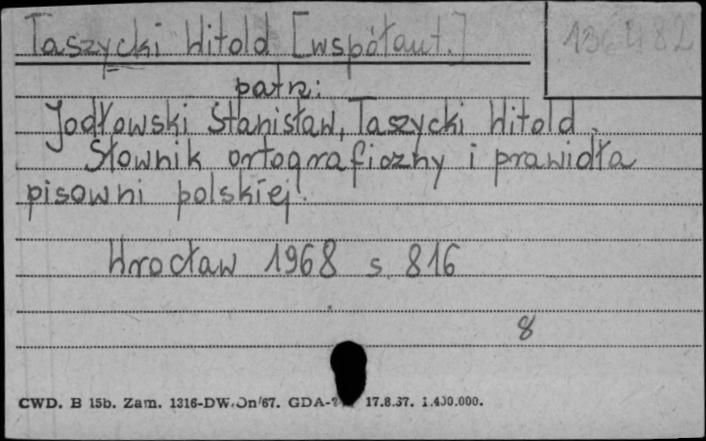 Taszycki Witold [współaut.]
patrz:
Jodłowski Stanisław, Taszycki Witold.
Słownik ortograficzny i prawidła
pisowni polskiej.
Wrocław 1968 s. 816
8
CWD. B 15b. Zam. 1316-DW/On/67. GDA- 17.8.67. 1.400.000.